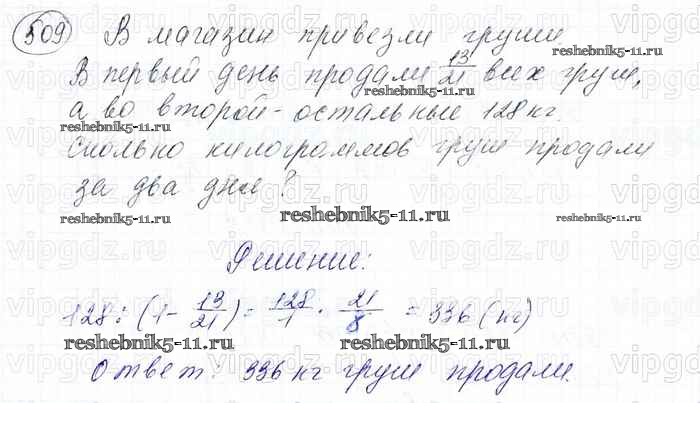 509 В магазин привезли груши
reshebnik5-11.ru
В первый день продали 13/21 всех груш,
а во второй - остальные 128 кг.
reshebnik5-11.ru
reshebnik5-11.ru
Сколько килограммов груш продали
за два дня?
reshebnik5-11.ru
reshebnik5-11.ru
reshebnik5-11.ru
Решение:
128 : (1 - 13/21) = 128/1 · 21/8 = 336 (кг)
reshebnik5-11.ru
reshebnik5-11.ru
Ответ: 336 кг груш продали.
vipgdz.ru